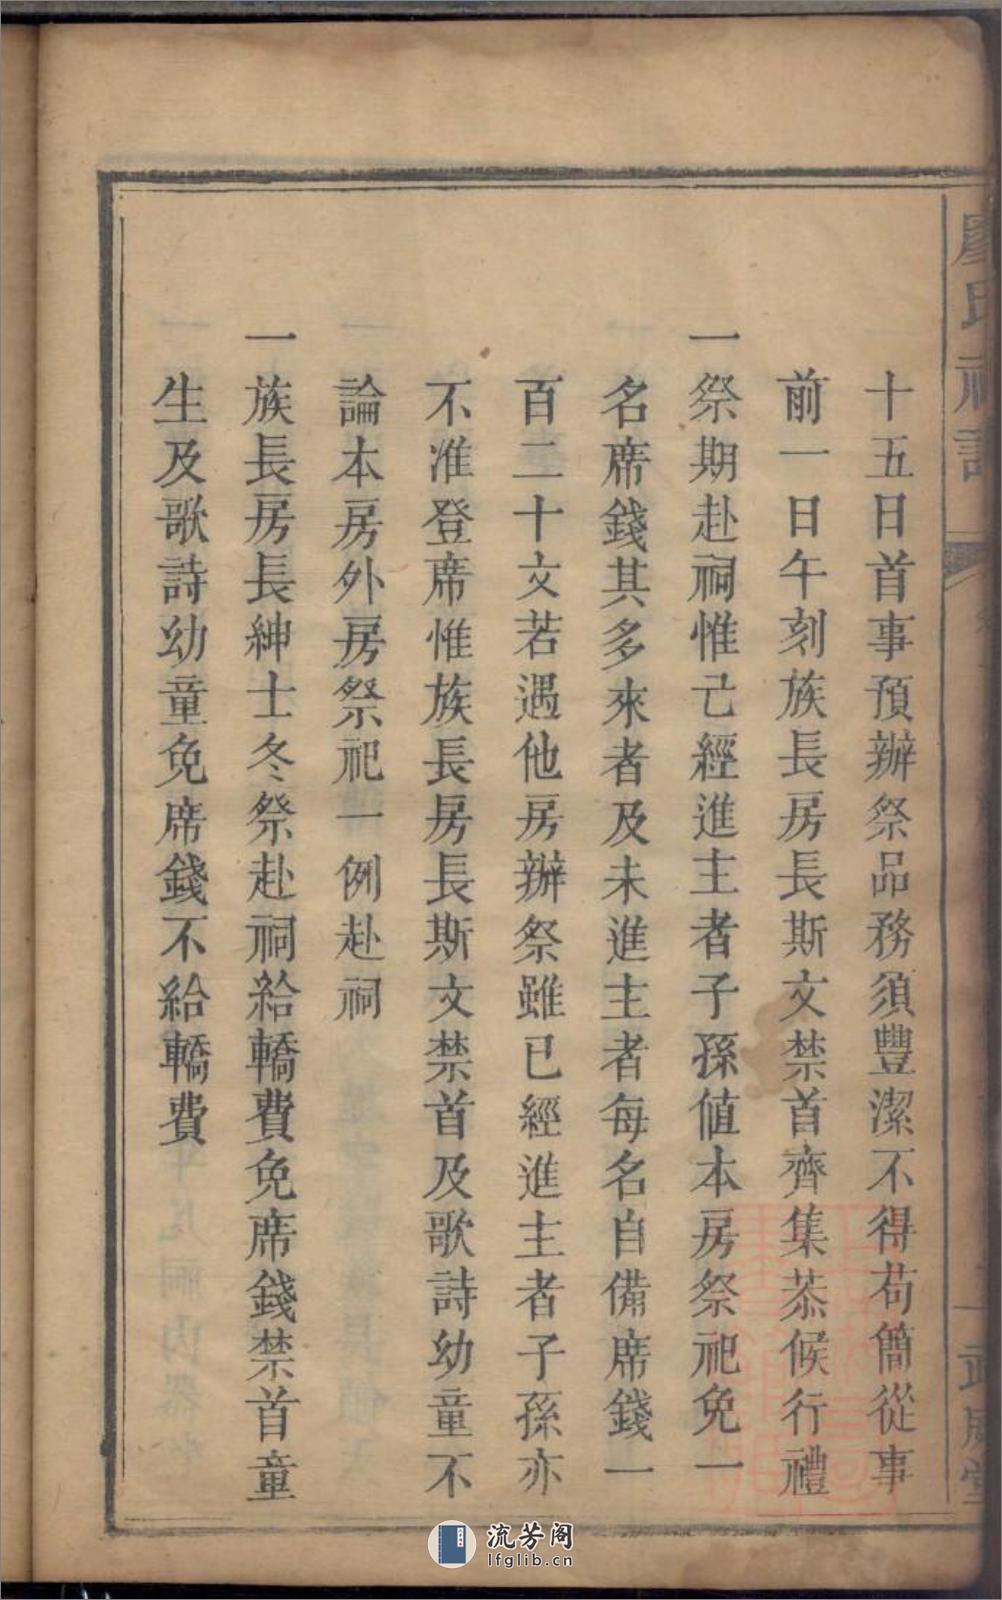 十五日首事預辦祭品務須豐潔不得苟簡從事
前一日午刻族長房長斯文禁首齊集恭候行禮
一祭期赴祠惟已經進主者子孫値本房祭祀免一
名席錢其多來者及未進主者每名自備席錢一
百二十文若遇他房辦祭雖已經進主者子孫亦
不准登席惟族長房長斯文禁首及歌詩幼童不
論本房外房祭祀一例赴祠
一族長房長紳士冬祭赴祠給轎費免席錢禁首童
生及歌詩幼童免席錢不給轎費
流芳阁
lfglib.cn